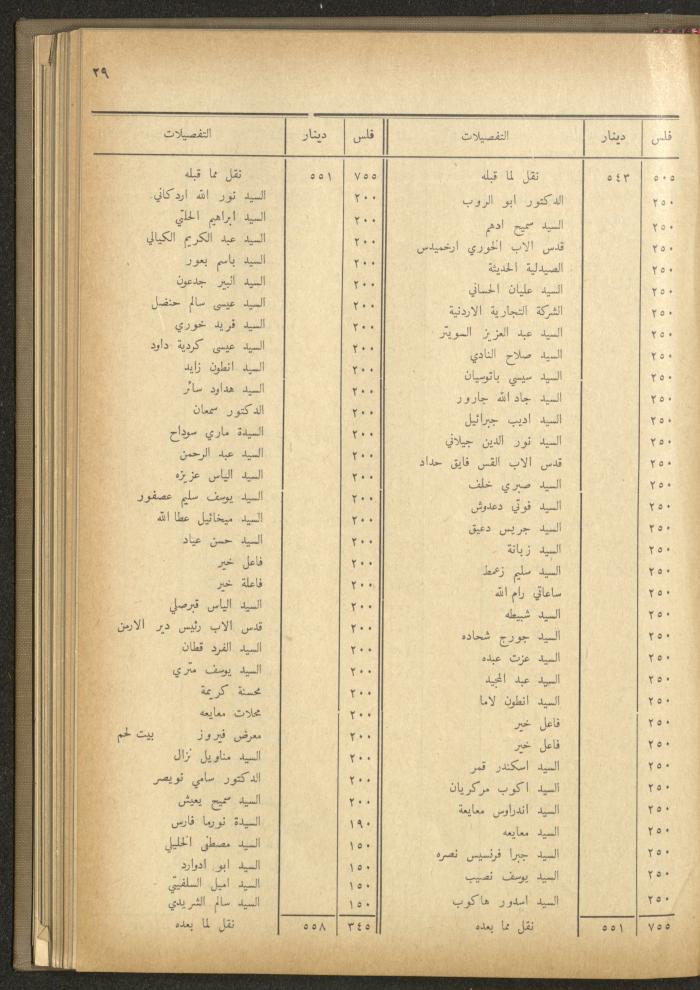 ٢٩
فلس دينار التفصيلات
٥٠٥ ٥٤٣ نقل لما قبله
٢٥٠ الدكتور ابو الروب
٢٥٠ السيد سميح ادهم
٢٥٠ قدس الاب الخوري ارخميدس
٢٥٠ الصيدلية الحديثة
٢٥٠ السيد عليان الحساني
٢٥٠ الشركة التجارية الاردنية
٢٥٠ السيد عبد العزيز السويتر
٢٥٠ السيد صلاح النادي
٢٥٠ السيد سيسي باتوسيان
٢٥٠ السيد جاد الله جارور
٢٥٠ السيد اديب جبرائيل
٢٥٠ السيد نور الدين جيلاني
٢٥٠ قدس الاب القس فايق حداد
٢٥٠ السيد صبري خلف
٢٥٠ السيد فوتي دعدوش
٢٥٠ السيد جريس دعيق
٢٥٠ السيد زبانة
٢٥٠ السيد سليم زعمط
٢٥٠ ساعاتي رام الله
٢٥٠ السيد شبيطه
٢٥٠ السيد جورج شحاده
٢٥٠ السيد عزت عبده
٢٥٠ السيد عبد المجيد
٢٥٠ السيد انطون لاما
٢٥٠ فاعل خير
٢٥٠ فاعل خير
٢٥٠ السيد اسكندر قمر
٢٥٠ السيد اكوب مركريان
٢٥٠ السيد اندراوس معايعة
٢٥٠ السيد معايعه
٢٥٠ السيد جبرا فرنسيس نصره
٢٥٠ السيد يوسف نصيب
٢٥٠ السيد اسدور هاكوب
٧٥٥ ٥٥١ نقل مما بعده
فلس دينار التفصيلات
٧٥٥ ٥٥١ نقل مما قبله
٢٠٠ السيد نور الله اردكاني
٢٠٠ السيد ابراهيم الحلتي
٢٠٠ السيد عبد الكريم الكيالي
٢٠٠ السيد باسم بعور
٢٠٠ السيد البير جدعون
٢٠٠ السيد عيسى سالم حنضل
٢٠٠ السيد فريد خوري
٢٠٠ السيد عيسى كردية داود
٢٠٠ السيد انطون زايد
٢٠٠ السيد هداود سائر
٢٠٠ الدكتور سمعان
٢٠٠ السيدة ماري سوداح
٢٠٠ السيد عبد الرحمن
٢٠٠ السيد الياس عزيزه
٢٠٠ السيد يوسف سليم عصفور
٢٠٠ السيد ميخائيل عطا الله
٢٠٠ السيد حسن عياد
٢٠٠ فاعل خير
٢٠٠ فاعلة خير
٢٠٠ السيد الياس قبرصلي
٢٠٠ قدس الاب رئيس دير الارمن
٢٠٠ السيد الفرد قطان
٢٠٠ السيد يوسف متري
٢٠٠ محسنة كريمة
٢٠٠ محلات معايعه
٢٠٠ معرض فيروز بيت لحم
٢٠٠ السيد مناويل نزال
٢٠٠ الدكتور سامي نويصر
٢٠٠ السيد سميح يعيش
١٩٠ السيدة نورما فارس
١٥٠ السيد مصطفى الخليلي
١٥٠ السيد ابو ادوارد
١٥٠ السيد اميل السلفيتي
١٥٠ السيد سالم الشريدي
٣٤٥ ٥٥٨ نقل لما بعده